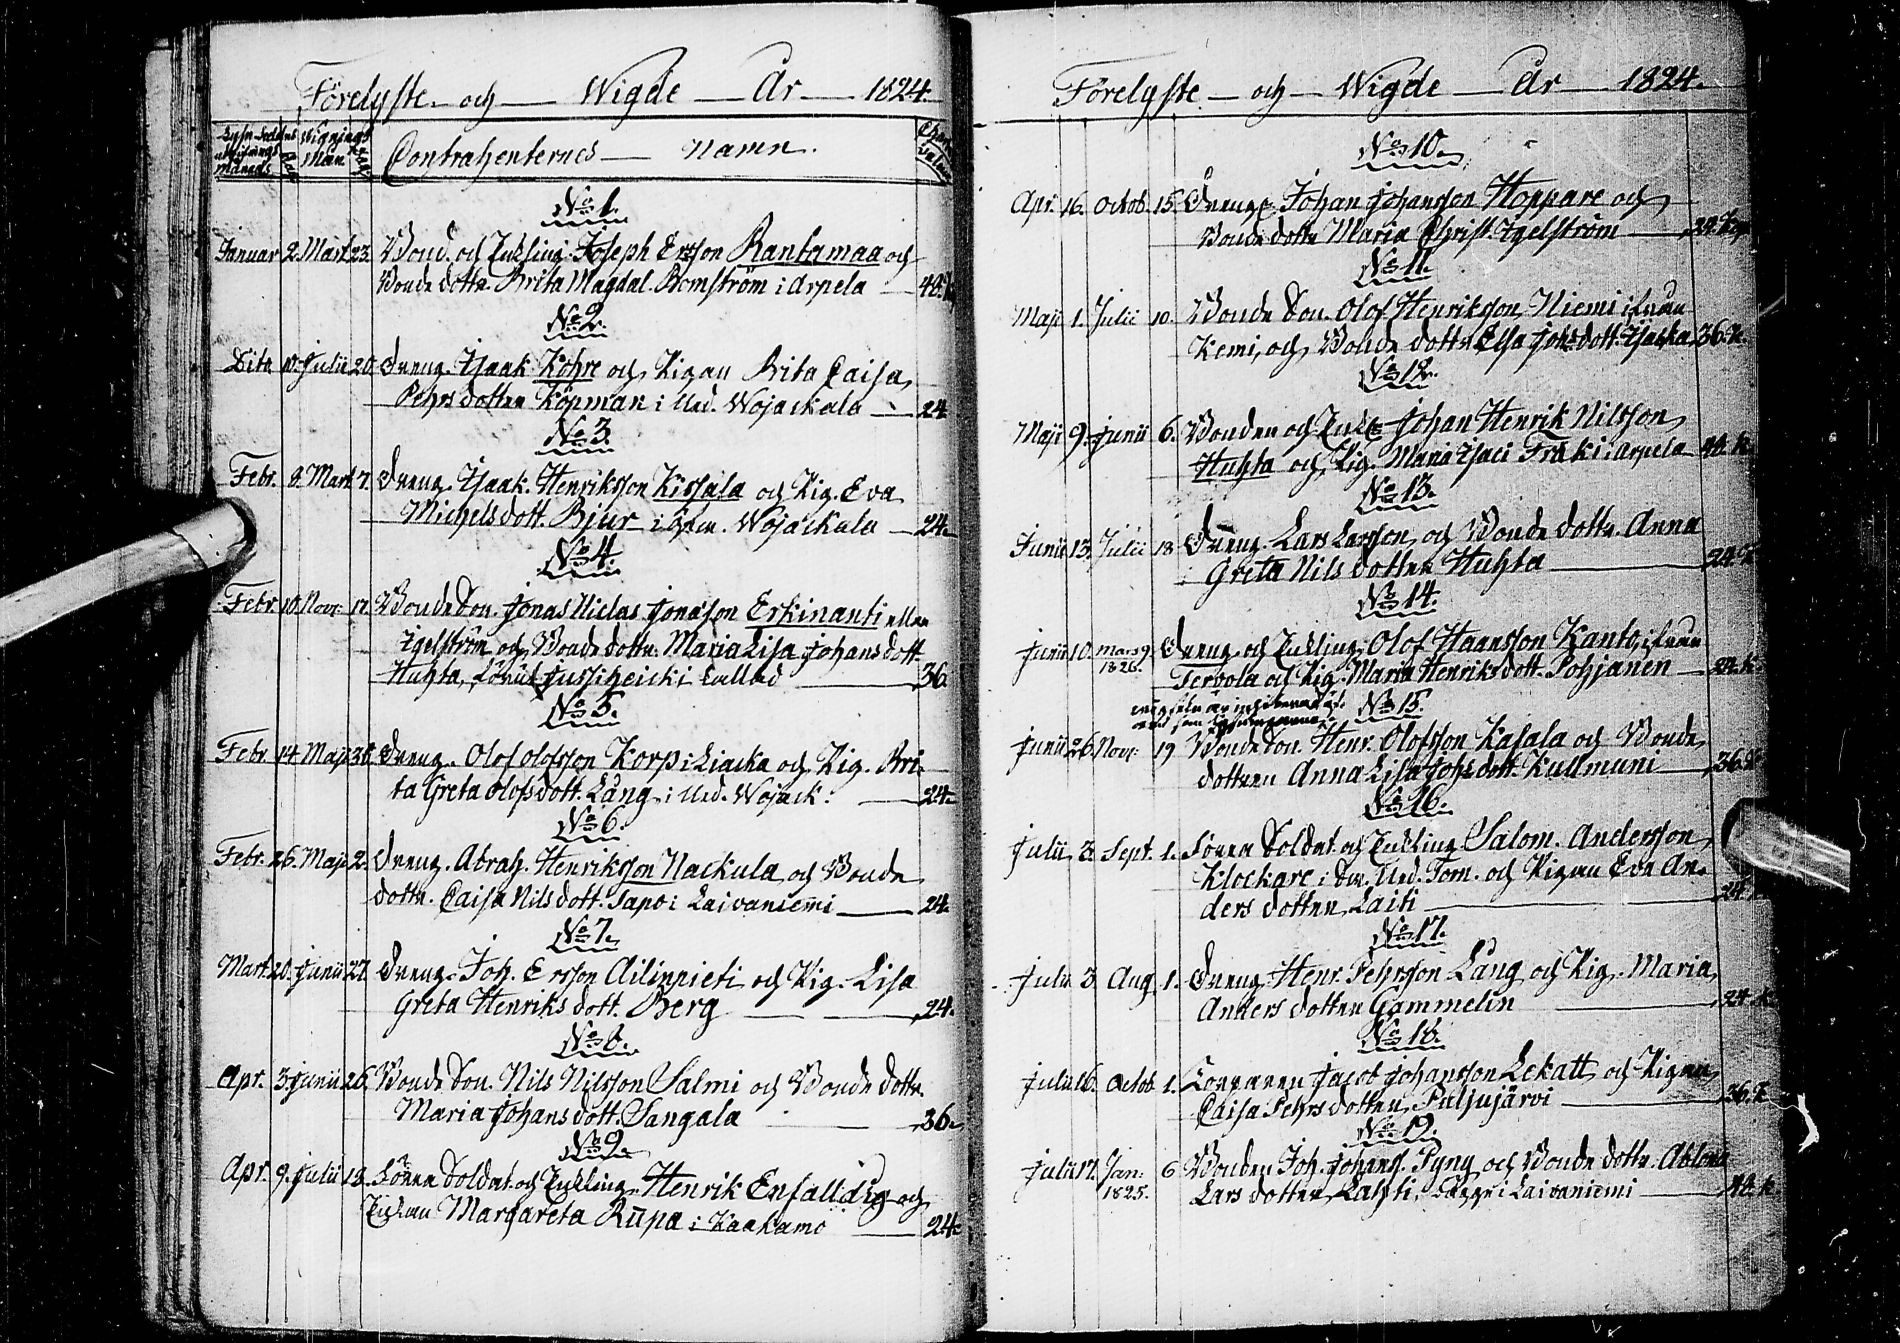 Förelyste och Wigde År 1824.
Contrahenternes Namn.
No 1.
Januar 2. Mart 23. Bond. och Enkling. Joseph Ersson Rantamaa och
Bonde dottr. Brita Magdal. Bomström i Arpela 48.
No 2.
Dito 10. Julii 20. Dreng. Isaak Köhre och Pigan Brita Caisa
Pehrs dotter Köpman i Ned. Wojackala 24.
No 3.
Febr. 8. Mart 7. Dreng. Isaak Henriksson Kissala och Pig. Eva
Michelsdott. Bjur i Öfv. Wojackala 24.
No 4.
Febr. 10. Novr. 17. Bonde Son. Jonas Niclas Jonasson Erkinanti eller
Igelström och Bonde dottr. Maria Lisa Johans dott.
Huhta, Jussiheicki kallad 36.
No 5.
Febr. 14. Maji 30. Dreng. Olof Olofsson Korp i Liacka och Pig. Bri-
ta Greta Olofsdott. Lång i Ned. Wojack: 24.
No 6.
Febr. 26. Maji 2. Dreng. Abrah. Henriksson Nackula och Bonde
dottr. Caisa Nils dott. Sapo i Laivaniemi 24.
No 7.
Mart. 20. Junii 27. Dreng. Joh. Ersson Ailinpieti och Pig. Lisa
Greta Henriks dott. Berg 24.
No 8.
Apr. 3. Junii 26. Bonde Son. Nils Nilsson Salmi och Bonde dottr.
Maria Johans dott. Sangala 36.
No 9.
Apr. 9. Julii 18. Förra Soldat och Enkling. Henrik Enfalldig och
Pigan Margareta Rupa i Kaakamo 24.
Förelyste och Wigde År 1824.
No 10.
Apr. 16. Octob. 15. Dreng. Johan Johansson Hoppare och
Bonde dottr Maria Christ. Igelström 24. Kop
No 11.
Maji 1. Julii 10. Bonde Son. Olof Henriksson Niemi ifrån
Kemi, och Bonde dottr. Elsa Johs dott. Isacka 36. k.
No 12.
Maji 9. Junii 6. Bonden och Enkl. Johan Henrik Nilsson
Huhta och Pig. Maria Isaci Fräki i Arpela 48. k.
No 13.
Junii 13. Julii 18. Dreng. Lars Larsson och Bonde dottr. Anna
Greta Nils dotter Huhta 24. k
No 14.
Junii 10. Mars 9. Dreng och Enkling. Olof Haansson Kanto, ifrån
1826. Tervola och Pig. Maria Henriks dott. Pohjanen 24. k.
No 15.
Junii 26. Novr. 19 Bonde Son. Henr. Olofsson Kasala och Bonde
dottren Anna Lisa Johs dott. Kullmuni 36. k
No 16.
Julii 3. Sept. 1. Förra Soldat och Enkling Salom. Andersson
Klockare i Ned. Torn. och Pigan Eva An-
ders dotter Laiti 24.
No 17.
Julii 3. Aug. 1. Dreng. Henr. Pehrsson Lång och Pig. Maria
Anders dotter Gammelin 24. k
No 18.
Julii 16. Octob. 1. Jacob Johansson Lekatt och Pigan
Caisa Pehrs dotter Puljujärvi 36. k
No 19.
Julii 17. Jan: 6 Bonden Joh. Johans. Pyny och Bonde dottr.
1825. Lars dotter Lahti, i Laivaniemi 48. k.